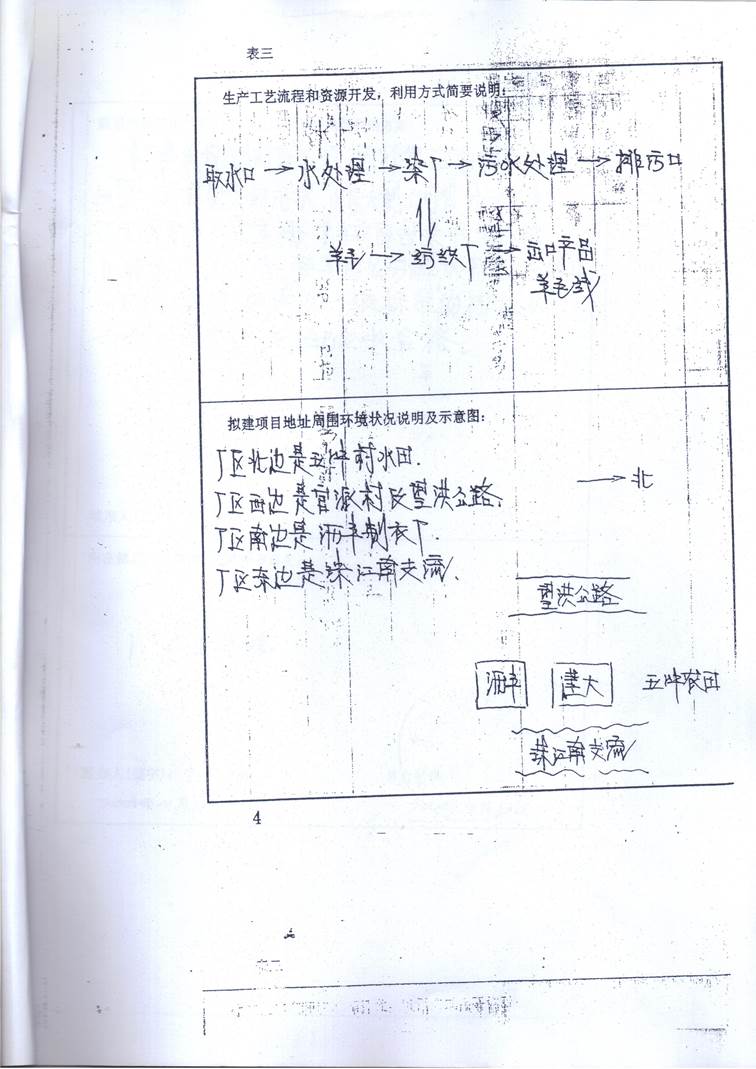 表三
生产工艺流程和资源开发，利用方式简要说明：
取水口→水处理→染厂→污水处理→排污口
羊毛→纺织厂→出口产品
羊毛线
拟建项目地址周围环境状况说明及示意图：
厂区北边是五坪村水田.
→北
厂区西边是官派村及望洪公路.
厂区南边是沥丰制衣厂.
厂区东边是珠江南支流.
望洪公路
沥丰 建大 五坪农田
珠江南支流
4